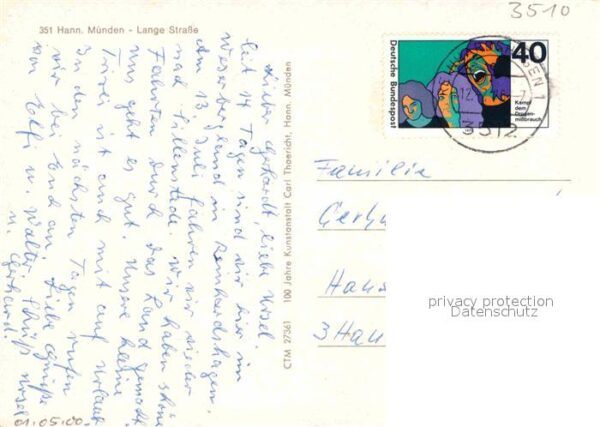 3510
351 Hann. Münden - Lange Straße
Lieber Gerhardt, liebe Ursel.
Seit 14 Tagen sind wir hier im
Weserbergland in Reinhardshagen.
Am 13. Juli fahren wir wieder
nach Fillenstede. Wir haben schöne
Fahrten durch das Land gemacht
uns geht es gut. Unsere kleine
ist auch mit auf Urlaub
In den nächsten Tagen rufen
wir bei Euch an. Liebe Grüße
von Elfi u. Walter
u. Gerhard.
01.05.00.
CTM 27361 100 Jahre Kunstanstalt Carl Thaericht, Hann. Münden
Deutsche Bundespost
40
Kampf
dem
Drogen-
mißbrauch
SEN 1
12.
3512
Familie
Gerh
Hans
3 Han
privacy protection
Datenschutz